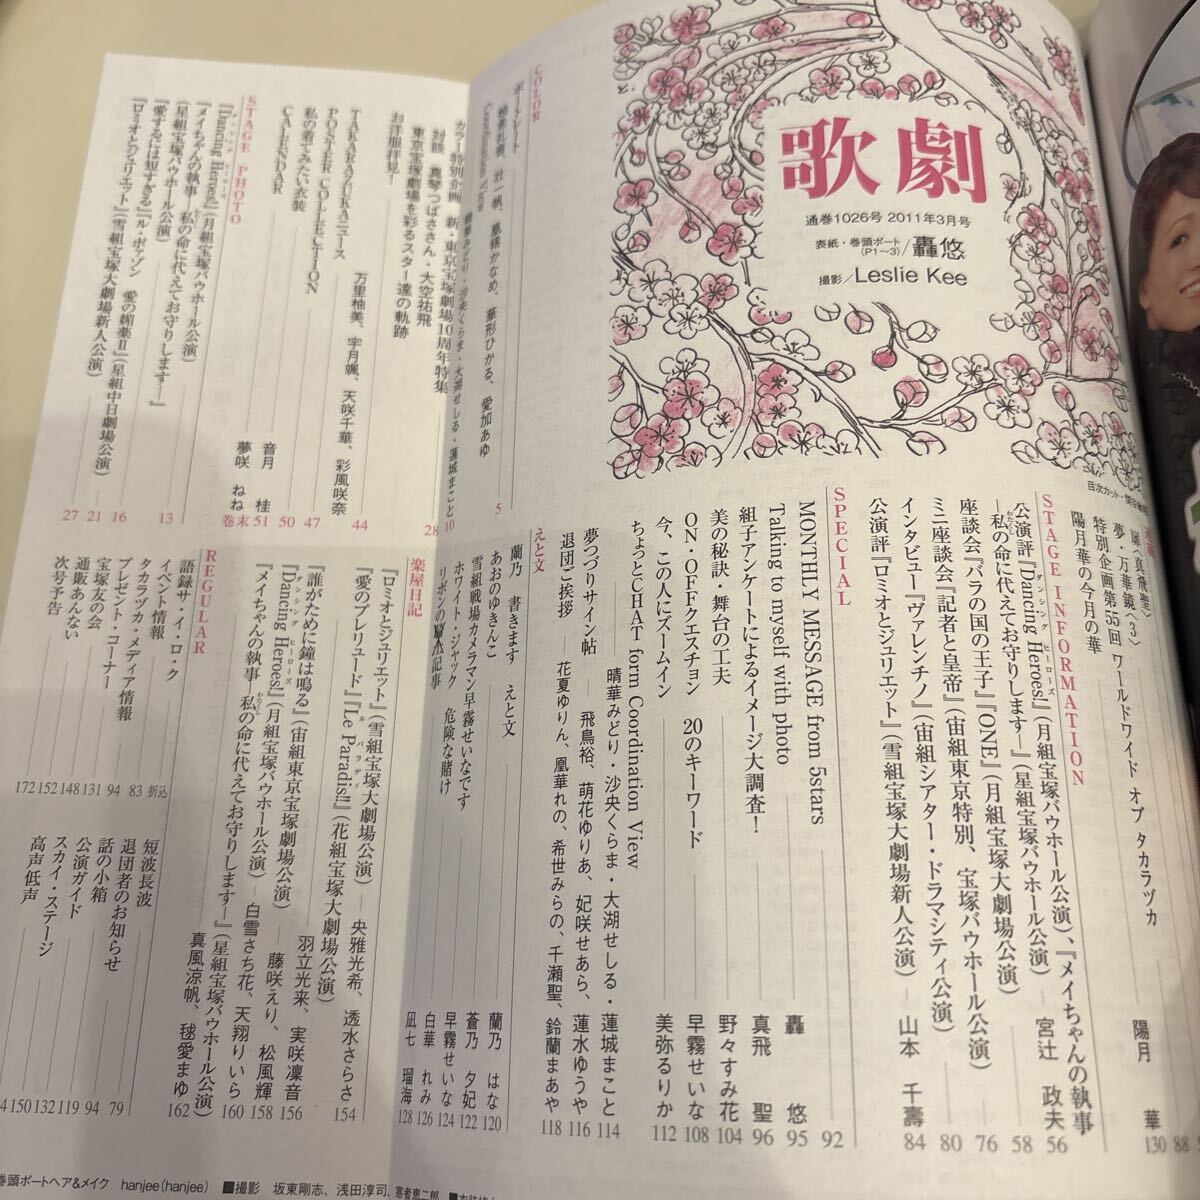 歌劇
通巻1026号 2011年3月号
表紙・巻頭ポート(P1〜3)/轟悠
撮影/Leslie Kee
COLOR
ポートレート
壮一帆、凰稀かなめ、華形ひかる、愛加あゆ 5
Coordination View
晴華みどり・沙央くらま・大湖せしる・蓮城まこと 10
カラー特別企画 新・東京宝塚劇場10周年特集
対談 真琴つばささん・大空祐飛
東京宝塚劇場を彩るスター達の軌跡 28
お洋服拝見!
万里柚美、宇月颯、天咲千華、彩凪咲奈 44
TAKARAZUKAニュース
POSTER COLLECTION 47
私の着てみたい衣装 50
音月 桂 51
CALENDAR
夢咲 ねね 巻末
STAGE PHOTO
『Dancing Heroes!』(月組宝塚バウホール公演)
『メイちゃんの執事―私の命に代えてお守りします―』
(星組宝塚バウホール公演) 13
『愛するには短すぎる』『ル・ポァゾン 愛の媚薬Ⅱ』(星組中日劇場公演) 16
21
『ロミオとジュリエット』(雪組宝塚大劇場新人公演) 27
目次カット・
連載
扉(真飛聖)
夢・万華鏡〈3〉
特別企画第55回 ワールドワイド オブ タカラヅカ 88
陽月華の今月の華 陽月 華 130
STAGE INFORMATION
公演評『Dancing Heroes!』(月組宝塚バウホール公演)、『メイちゃんの執事
―私の命に代えてお守りします―』(星組宝塚バウホール公演) 宮辻 政夫 56
座談会『バラの国の王子』『ONE』(月組宝塚大劇場公演) 58
ミニ座談会『記者と皇帝』(宙組東京特別、宝塚バウホール公演) 76
インタビュー『ヴァレンチノ』(宙組シアター・ドラマシティ公演) 80
公演評『ロミオとジュリエット』(雪組宝塚大劇場新人公演) 山本 千壽 84
SPECIAL
92
MONTHLY MESSAGE from 5stars 轟 悠 95
Talking to myself with photo 真飛 聖 96
組子アンケートによるイメージ大調査! 野々すみ花 104
美の秘訣・舞台の工夫 早霧せいな 108
ON・OFFクエスチョン 20のキーワード 美弥るりか 112
今、この人にズームイン
ちょっとCHAT form Coordination View
晴華みどり・沙央くらま・大湖せしる・蓮城まこと 114
夢つづりサイン帖 飛鳥裕、萌花ゆりあ、妃咲せあら、蓮水ゆうや 116
退団ご挨拶 花夏ゆりん、凰華れの、希世みらの、千瀬聖、鈴蘭まあや 118
えと文
蘭乃 書きます えと文 蘭乃 はな 120
あおのゆきんこ 蒼乃 夕妃 122
雪組戦場カメラマン早霧せいなです 早霧せいな 124
ホワイト・ジャック 危険な賭け 白華 れみ 126
リボンの凪七記事 凪七 瑠海 128
楽屋日記
『ロミオとジュリエット』(雪組宝塚大劇場公演) 央雅光希、透水さらさ 154
『愛のプレリュード』『Le Paradis!!』(花組宝塚大劇場公演)
羽立光来、実咲凜音 156
『誰がために鐘は鳴る』(宙組東京宝塚劇場公演) 藤咲えり、松風輝 158
『Dancing Heroes!』(月組宝塚バウホール公演) 白雪さち花、天翔りいら 160
『メイちゃんの執事―私の命に代えてお守りします―』(星組宝塚バウホール公演)
真風涼帆、毬愛まゆ 162
REGULAR
語録サ・イ・ロ・ク 折込
イベント情報 83
タカラヅカ・メディア情報 94
プレゼント・コーナー 131
宝塚友の会 148
通販あんない 152
次号予告 172
短波長波 79
退団者のお知らせ 94
話の小箱 119
公演ガイド 132
スカイ・ステージ 150
高声低声
巻頭ポートヘア&メイク hanjee(hanjee) ■撮影 坂東剛志、浅田淳司、